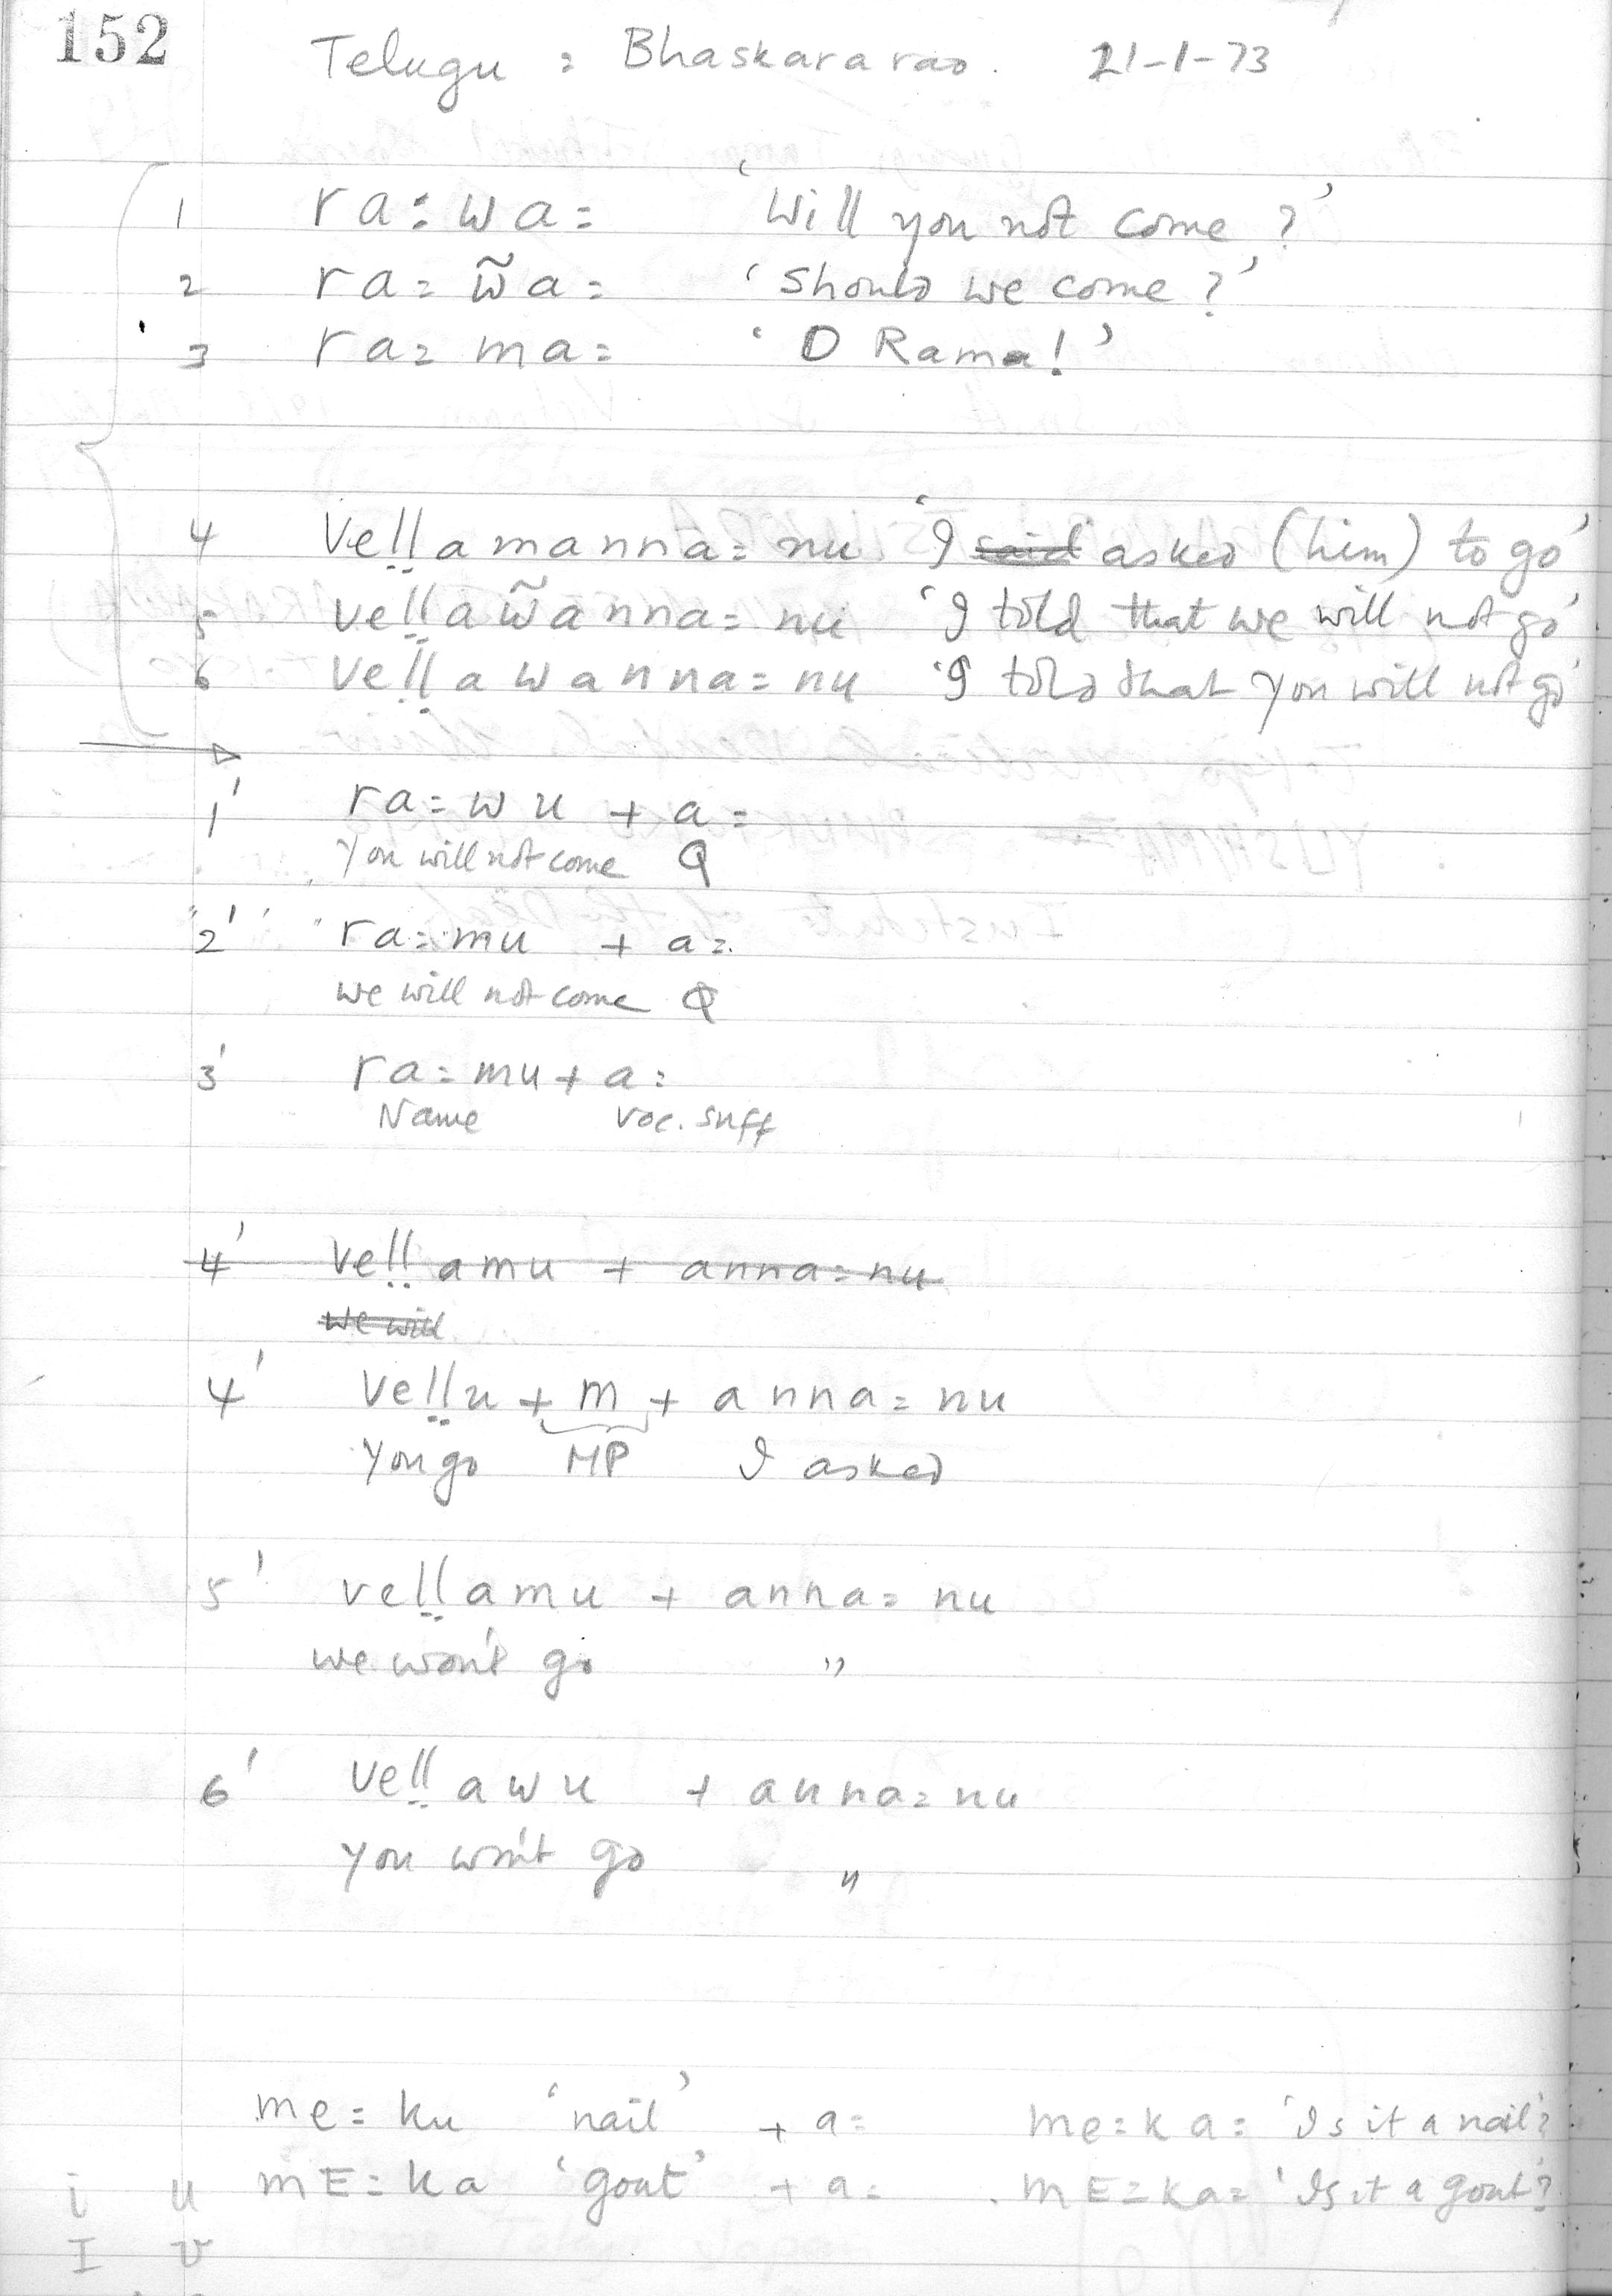 152
Telugu : Bhaskararao. 21-1-73
1 ra:wa: 'Will you not come?'
2 ra:w̃a: 'Should we come?'
3 ra:ma: 'O Rama!'
4 veḷḷamanna:nu 'I said asked (him) to go'
5 veḷḷaw̃anna:nu 'I told that we will not go'
6 veḷḷawanna:nu 'I told that you will not go'
1' ra:wu + a:
You will not come Q
2' ra:mu + a:
we will not come Q
3' ra:mu + a:
Name voc. suff
4' veḷḷamu + anna:nu
we will
4' veḷḷu + m + anna:nu
You go MP I asked
5' veḷḷamu + anna:nu
we won't go "
6' veḷḷawu + anna:nu
you won't go "
me:ku 'nail' + a: me:ka: 'Is it a nail?'
i u mE:ka 'goat' + a: mE:ka: 'Is it a goat?'
I U